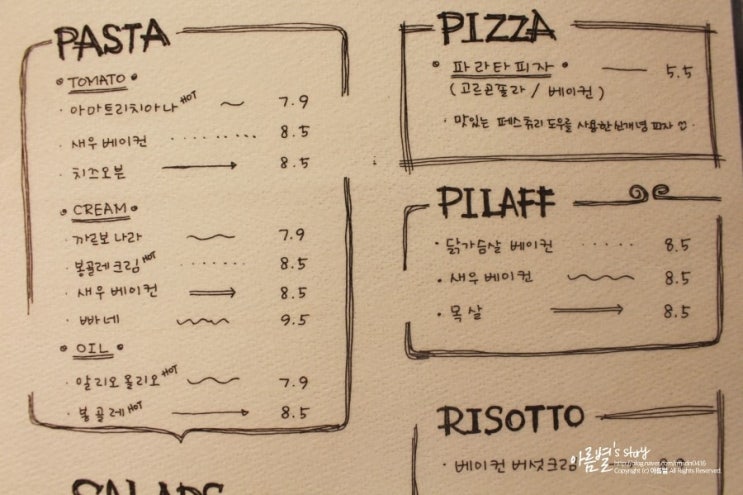 PASTA
• TOMATO •
· 아마트리치아나 HOT ~ 7.9
· 새우 베이컨 ........ 8.5
· 치즈오븐 → 8.5
• CREAM •
· 까르보나라 ~ 7.9
· 봉골레크림 HOT ...... 8.5
· 새우 베이컨 ⇒ 8.5
· 빠네 ~~~ 9.5
• OIL •
· 알리오올리오 HOT ~ 7.9
· 봉골레 HOT → 8.5
SALADS
PIZZA
• 파라타피자 • — 5.5
(고르곤졸라 / 베이컨)
· 맛있는 페스츄리 도우를 사용한 신개념 피자 ♡ ·
PILAFF
· 닭가슴살 베이컨 ..... 8.5
· 새우 베이컨 ~~~ 8.5
· 목살 ⇒ 8.5
RISOTTO
· 베이컨 버섯크림
아름별's story
Copyright (c) 아름별 All Rights Reserved.